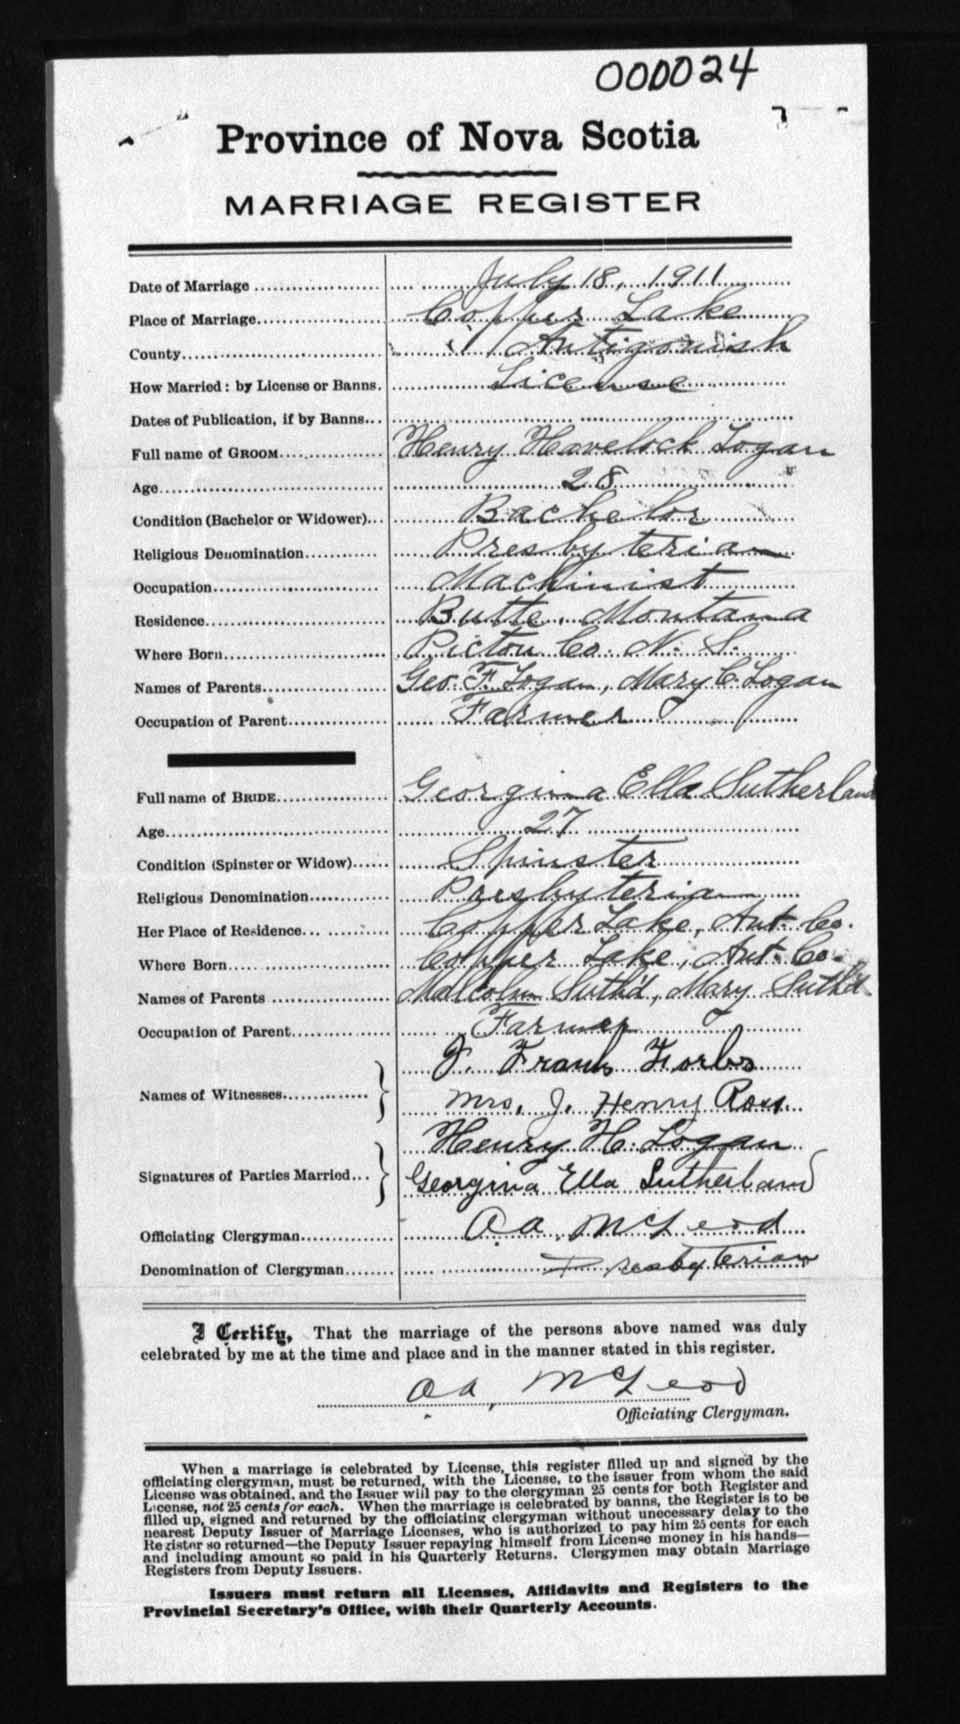 000024
Province of Nova Scotia
MARRIAGE REGISTER
Date of Marriage July 18, 1911
Place of Marriage Copper Lake
County Antigonish
How Married: by License or Banns. License
Dates of Publication, if by Banns
Full name of GROOM Henry Havelock Logan
Age 28
Condition (Bachelor or Widower) Bachelor
Religious Denomination Presbyterian
Occupation Machinist
Residence Butte, Montana
Where Born Pictou Co. N. S.
Names of Parents Geo. F. Logan, Mary C. Logan
Occupation of Parent Farmer
Full name of BRIDE Georgina Ella Sutherland
Age 27
Condition (Spinster or Widow) Spinster
Religious Denomination Presbyterian
Her Place of Residence Copper Lake, Ant. Co.
Where Born Copper Lake, Ant. Co.
Names of Parents Malcolm Suth'd, Mary Suth'd
Occupation of Parent Farmer
Names of Witnesses J. Frank Forbs
Mrs. J. Henry Ross.
Signatures of Parties Married Henry H. Logan
Georgina Ella Sutherland
Officiating Clergyman A. A. McLeod
Denomination of Clergyman Presbyterian
I Certify, That the marriage of the persons above named was duly
celebrated by me at the time and place and in the manner stated in this register.
A A, McLeod
Officiating Clergyman.
When a marriage is celebrated by License, this register filled up and signed by the
officiating clergyman, must be returned, with the License, to the issuer from whom the said
License was obtained, and the Issuer will pay to the clergyman 25 cents for both Register and
License, not 25 cents for each. When the marriage is celebrated by banns, the Register is to be
filled up, signed and returned by the officiating clergyman without unnecessary delay to the
nearest Deputy Issuer of Marriage Licenses, who is authorized to pay him 25 cents for each
Register so returned—the Deputy Issuer repaying himself from License money in his hands—
and including amount so paid in his Quarterly Returns. Clergymen may obtain Marriage
Registers from Deputy Issuers.
Issuers must return all Licenses, Affidavits and Registers to the
Provincial Secretary's Office, with their Quarterly Accounts.